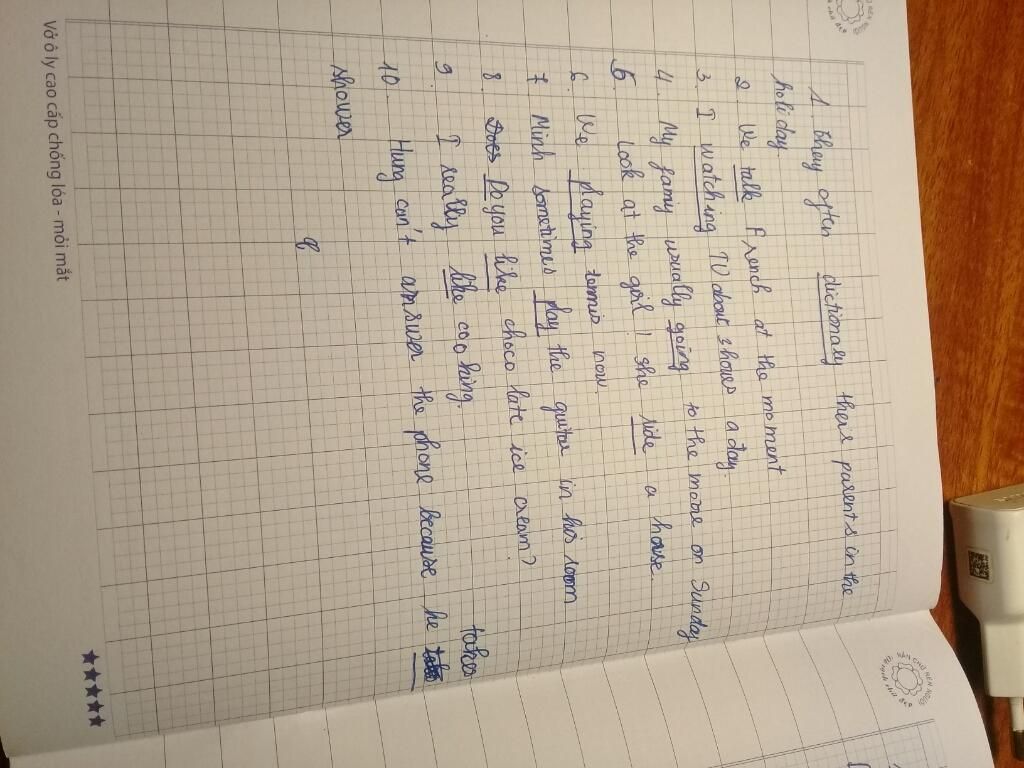 1. They often dictionary there parents in the
holiday.
2. We talk French at the moment
3. I watching TV about shows a day.
4. My famiy usually going to the movie on Sunday
5. Look at the girl! she ride a horse.
6. We playing tennis now.
7 Minh sometimes play the guitar in his room
8. Do you like choco late ice cream?
9. I really like cooking.
takes
10. Hung can't answer the phone because he
shower
Vở ô ly cao cấp chống lóa - mỏi mắt